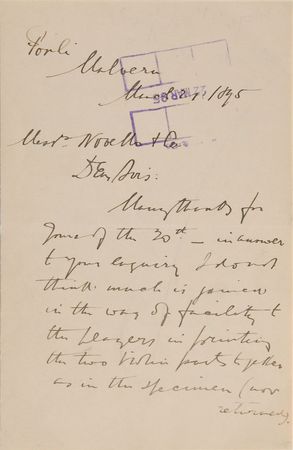 Forli
Malvern
March 21. 1895
22 MAR 95
Messrs Novello & Co
Dear Sirs:
Many thanks for
yours of the 20th — in answer
to your enquiry I do not
think much is gained
in the way of facility to
the players in printing
the two Violin parts together
as in the specimen (now
returned).